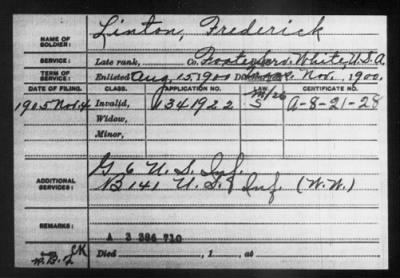 NAME OF SOLDIER: Linton, Frederick
SERVICE: Late rank, Co. Serv. White, U.S.A.
TERM OF SERVICE: Enlisted Aug. 15, 1900 Nov. , 1900.
DATE OF FILING. CLASS. APPLICATION NO. LAW. CERTIFICATE NO.
1905 Nov. 4 Invalid, 1341922 S A-8-21-28
Widow,
Minor,
ADDITIONAL SERVICES: G 6 U.S. Inf.
B 141 U.S. Inf. (W.W.)
REMARKS:
A 3 386 710
Died , 1 , at